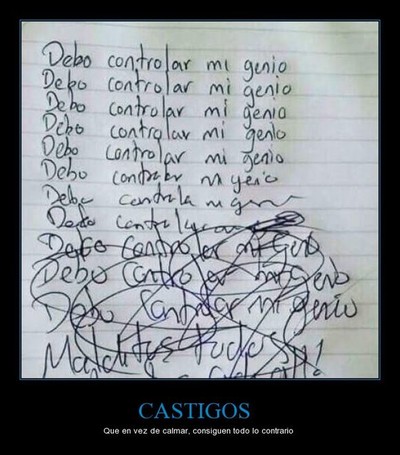 Debo controlar mi genio
Debo controlar mi genio
Debo controlar mi genio
Debo controlar mi genio
Debo controlar mi genio
Debo controlar mi genio
Debo
Debo
Debo controlar mi genio
Debo controlar mi genio
Debo controlar mi genio
Malditos todos!
CASTIGOS
Que en vez de calmar, consiguen todo lo contrario